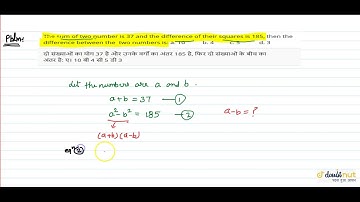 Pblm:
The sum of two number is 37 and the difference of their squares is 185, then the
difference between the two numbers is: a. 10 b. 4 c. 5 d. 3
दो संख्याओं का योग 37 है और उनके वर्गों का अंतर 185 है, फिर दो संख्याओं के बीच का
अंतर है: ए। 10 बी 4 सी 5 डी 3
let the numbers are a and b.
a+b = 37 —①
a²-b² = 185 —② a-b = ?
(a+b) (a-b)
eqn②
doubtnut